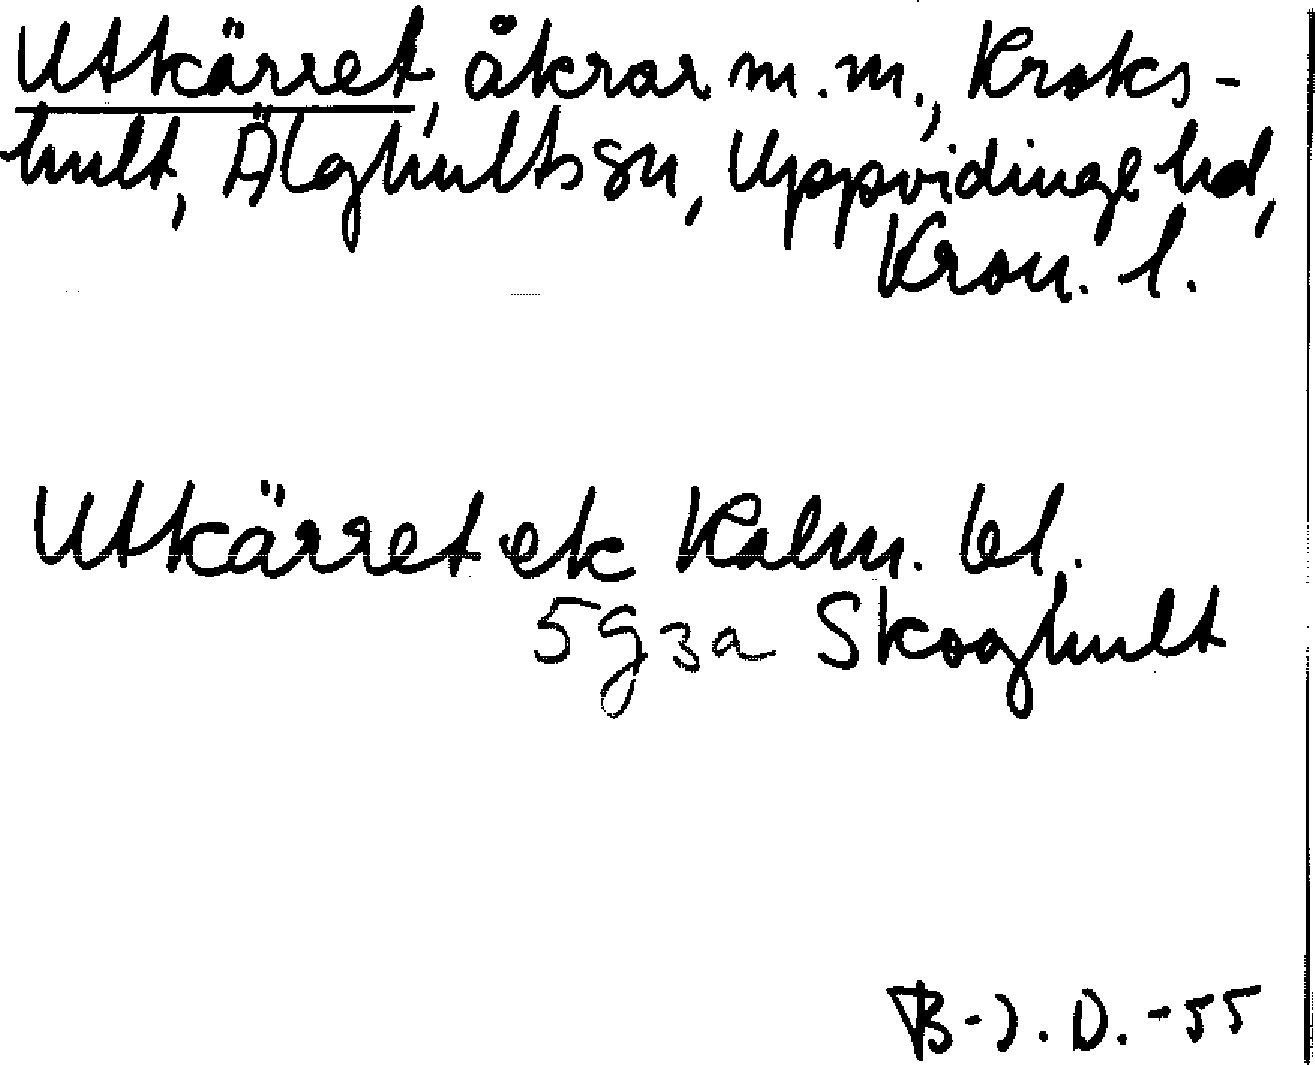 Utkärret, åkrar m.m., Kroks-
hult, Älghults sn, Uppvidinge hd,
Kron. l.
Utkärret ek Kalm. bl.
5 G 3 a Skoghult
B-J. D. -55